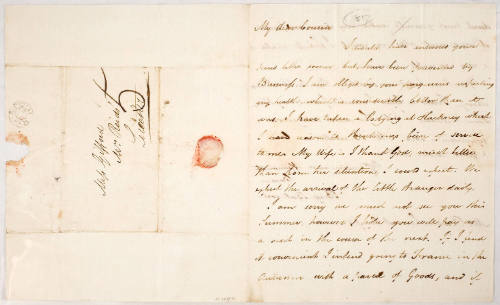 Miss Gifford
Mrs
My dear Cousin
I should have answered yours
some time sooner but have been prevented by
Business. I am obliged by your enquiries respecting
my health which is very much better than it
was. I have taken a lodging at Hackney which
I need being of service
to me. My Wife is I thank God, much better
than from her situation, I could expect. We
expect the arrival of the little stranger daily.
I am sorry we shall not see you this
Summer, however I hope you will pay us
a visit in the course of the next. If I find
it convenient I intend going to France in the
Autumn with a parcel of Goods, and if